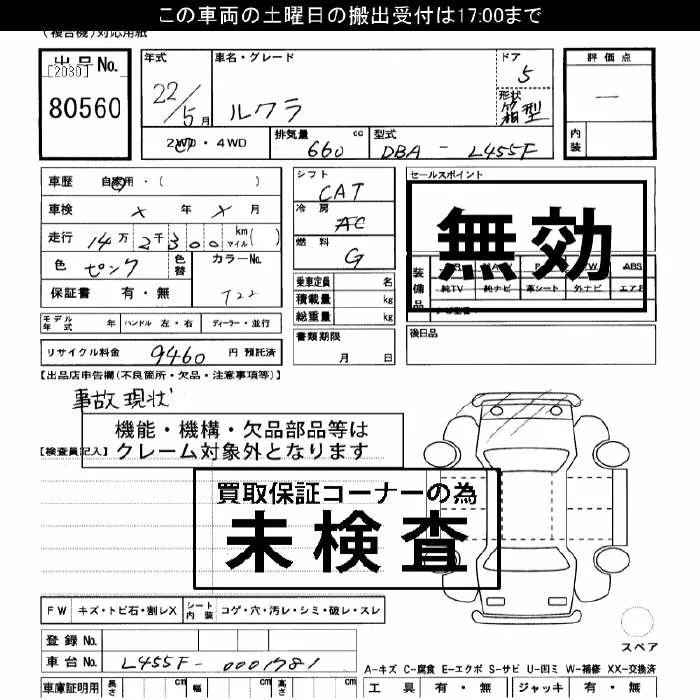 この車両の土曜日の搬出受付は17:00まで
(複合機)対応用紙
出品No.
[2030]
80560
年式
22/5月
車名・グレード
ルクラ
ドア
5
形状
箱型
評価点
—
内装
2WD・4WD
排気量 660 cc
型式 DBA - L455F
車歴 自家用・( )
車検 × 年 × 月
走行 14万2千300 km マイル( )
色 ピンク
色替
カラーNo.
T22
保証書 有・無
シフト
CAT
冷房
AC
燃料
G
乗車定員 名
積載量 kg
総重量 kg
セールスポイント
無効
装備品
ABS
純TV 純ナビ 革シート 外ナビ エアB
モデル年式 年 ハンドル 左・右 ディーラー・並行
書類期限
月 日
後日品
リサイクル料金 9460 円 預託済
【出品店申告欄(不良箇所・欠品・注意事項等)】
事故現状
機能・機構・欠品部品等は
クレーム対象外となります
【検査員記入】
買取保証コーナーの為
未検査
FW キズ・トビ石・割レX シート内装 コゲ・穴・汚レ・シミ・破レ・スレ
登録No.
車台No. L455F-0001781
スペア
A-キズ C-腐食 E-エクボ S-サビ U-凹ミ W-補修 XX-交換済
車庫証明用 長さ cm 幅 cm 高さ cm
工具 有・無 ジャッキ 有・無